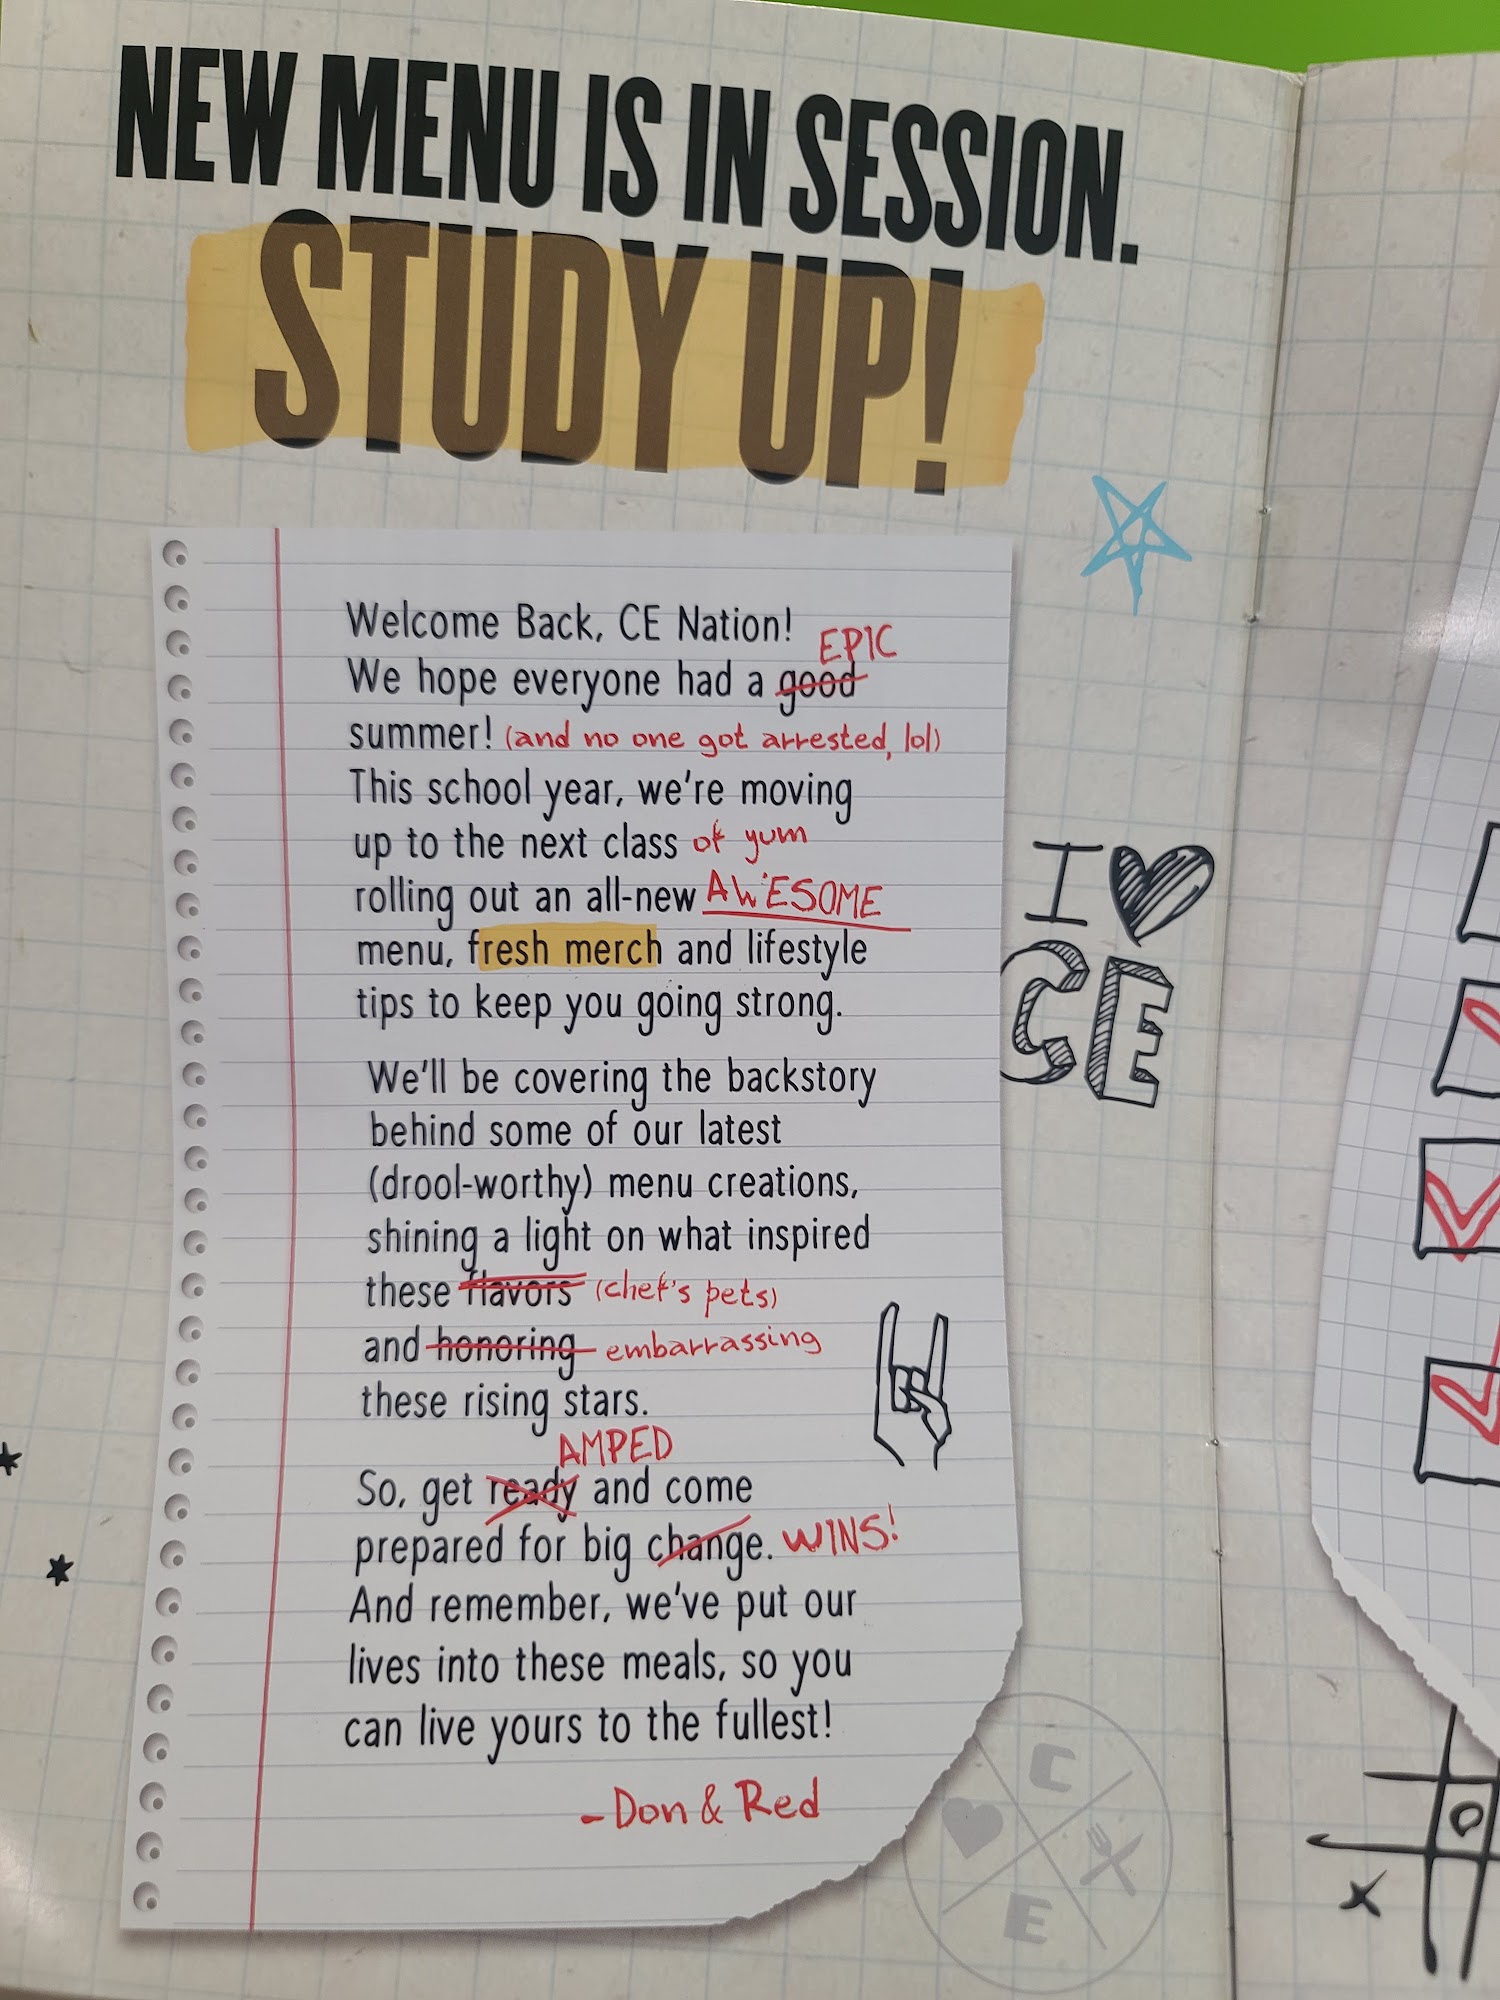 NEW MENU IS IN SESSION.
STUDY UP!
Welcome Back, CE Nation!
EPIC
We hope everyone had a good
summer! (and no one got arrested, lol)
This school year, we're moving
up to the next class of yum
rolling out an all-new AWESOME
menu, fresh merch and lifestyle
tips to keep you going strong.
We'll be covering the backstory
behind some of our latest
(drool-worthy) menu creations,
shining a light on what inspired
these flavors (chef's pets)
and honoring embarrassing
these rising stars.
AMPED
So, get ready and come
prepared for big change. WINS!
And remember, we've put our
lives into these meals, so you
can live yours to the fullest!
-Don & Red
I
CE
C
E
O
X